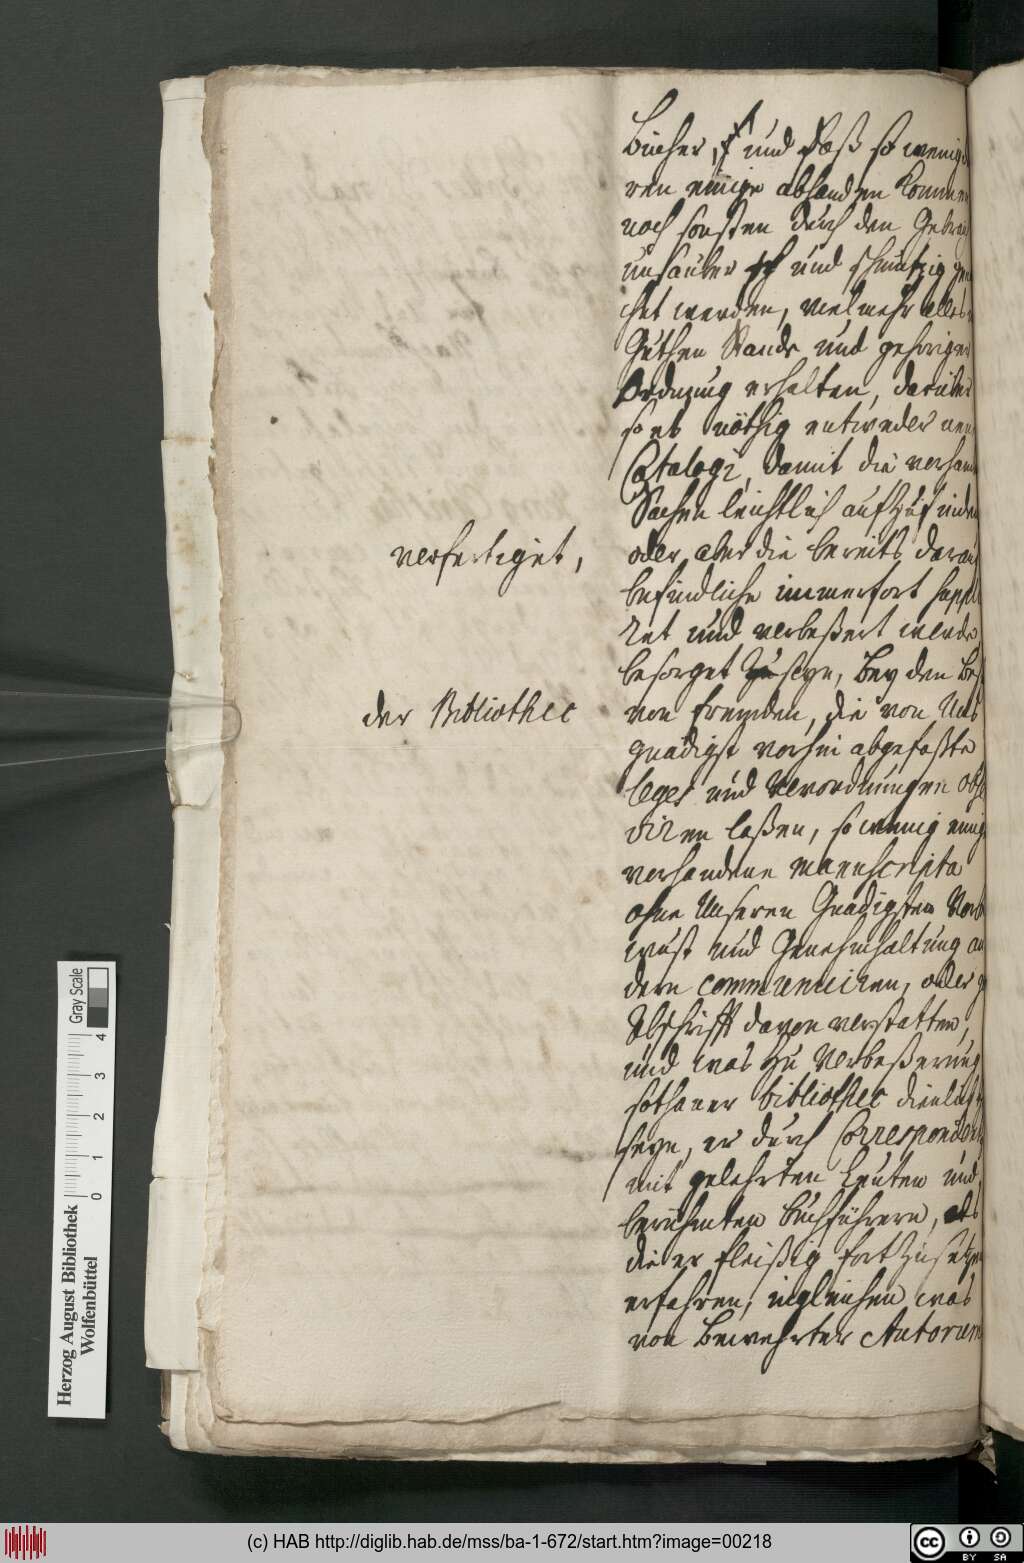 Bücher, und daß so wenig de
ren einige abhanden kommen
noch sonsten durch den Gebrau
unsauber und schmutzig gem
chet werden, vielmehr alles
Guthen Stande und gehöriger
Ordnung erhalten, darüber
so es nöthig entweder neu
Catalogi, damit die verhan
Sachen leichtlich aufzufinden
verfertiget,
oder, aber die bereits darau
befindliche immerfort suppl
ret und verbeßert werde
besorget zu seyn, Bey den Bes
der Bibliothec
von fremden, die von Uns
gnädigst vorhin abgefaßte
leges und Verordnungen obse
viren laßen, so wenig einig
verhandene Manuscripta
ohne Unseren Gnädigsten Vorb
wust und Genehmhaltung an
dern communiciren, oder g
Abschrifft davon verstatten,
und was zu Verbeßerung
sothaner bibliothec dienlich
seyn, er durch Correspondenz
mit gelehrten Leuten und
berühmten Buchführern, als
die er fleißig fortzusetzen
erfahren, ingleichen was
von Bewehrter Autorum
Herzog August Bibliothek
Wolfenbüttel
0 1 2 3 4
Gray Scale
(c) HAB http://diglib.hab.de/mss/ba-1-672/start.htm?image=00218
cc BY SA